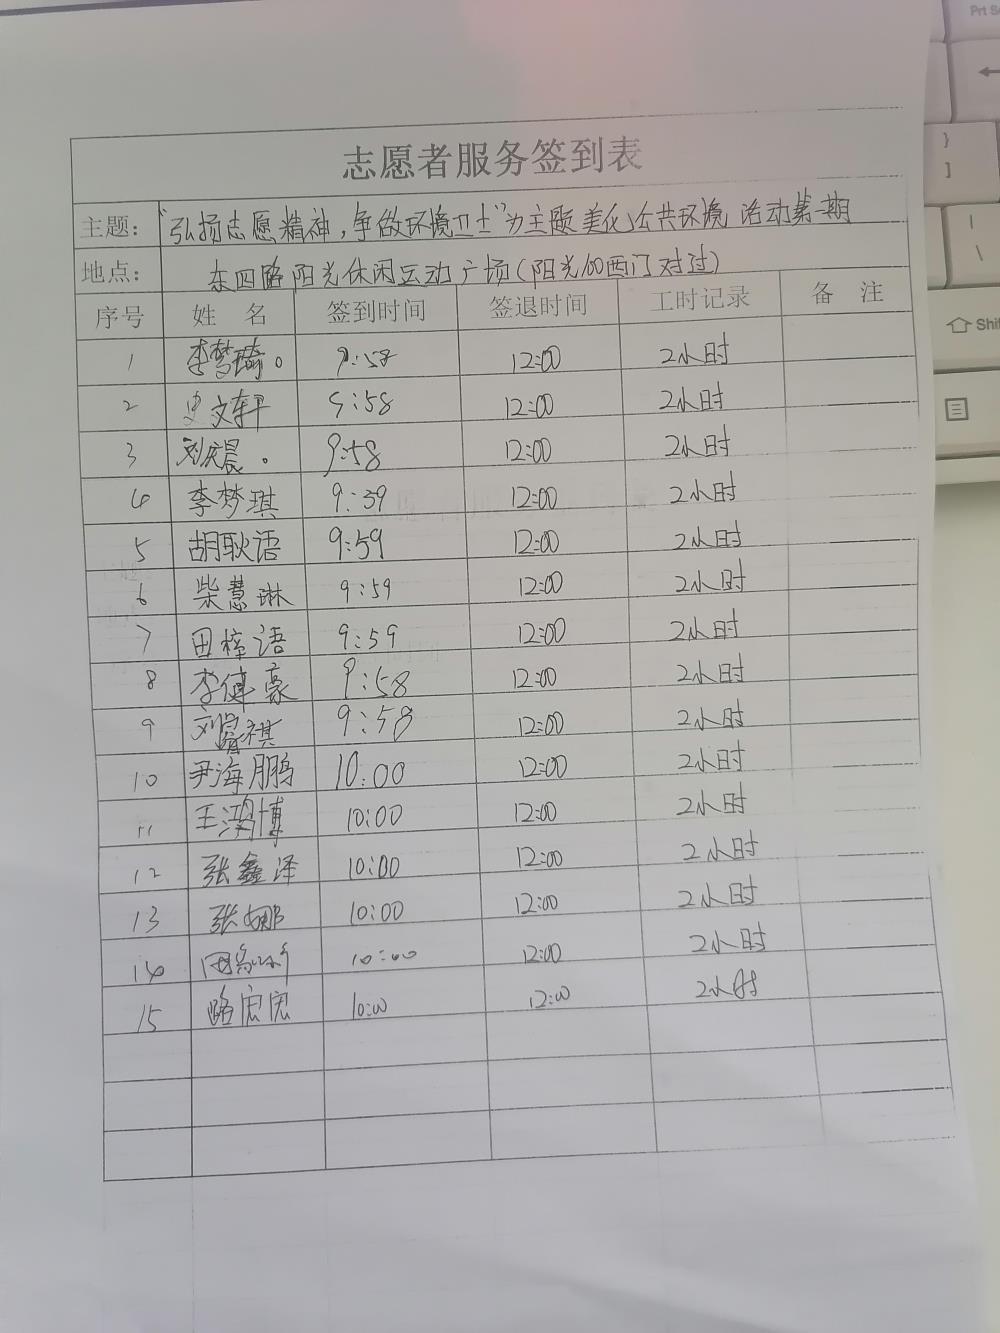 志愿者服务签到表
主题: “弘扬志愿精神,争做环境卫士”为主题美化公共环境 活动第一期
地点: 东四路阳光休闲运动广场(阳光100西门对过)
序号 姓 名 签到时间 签退时间 工时记录 备 注
1 李梦琦。 9:58 12:00 2小时
2 史文轩 9:58 12:00 2小时
3 刘庆晨。 9:58 12:00 2小时
4 李梦琪 9:39 12:00 2小时
5 胡耿语 9:59 12:00 2小时
6 柴慧琳 9:59 12:00 2小时
7 田梓语 9:59 12:00 2小时
8 李健豪 9:58 12:00 2小时
9 刘睿祺 9:58 12:00 2小时
10 尹海鹏 10:00 12:00 2小时
11 王鸿博 10:00 12:00 2小时
12 张鑫泽 10:00 12:00 2小时
13 张娜 10:00 12:00 2小时
14 10:00 12:00 2小时
15 路宏宏 10:00 12:00 2小时
Prt Sc
}
]
|
\
Shift